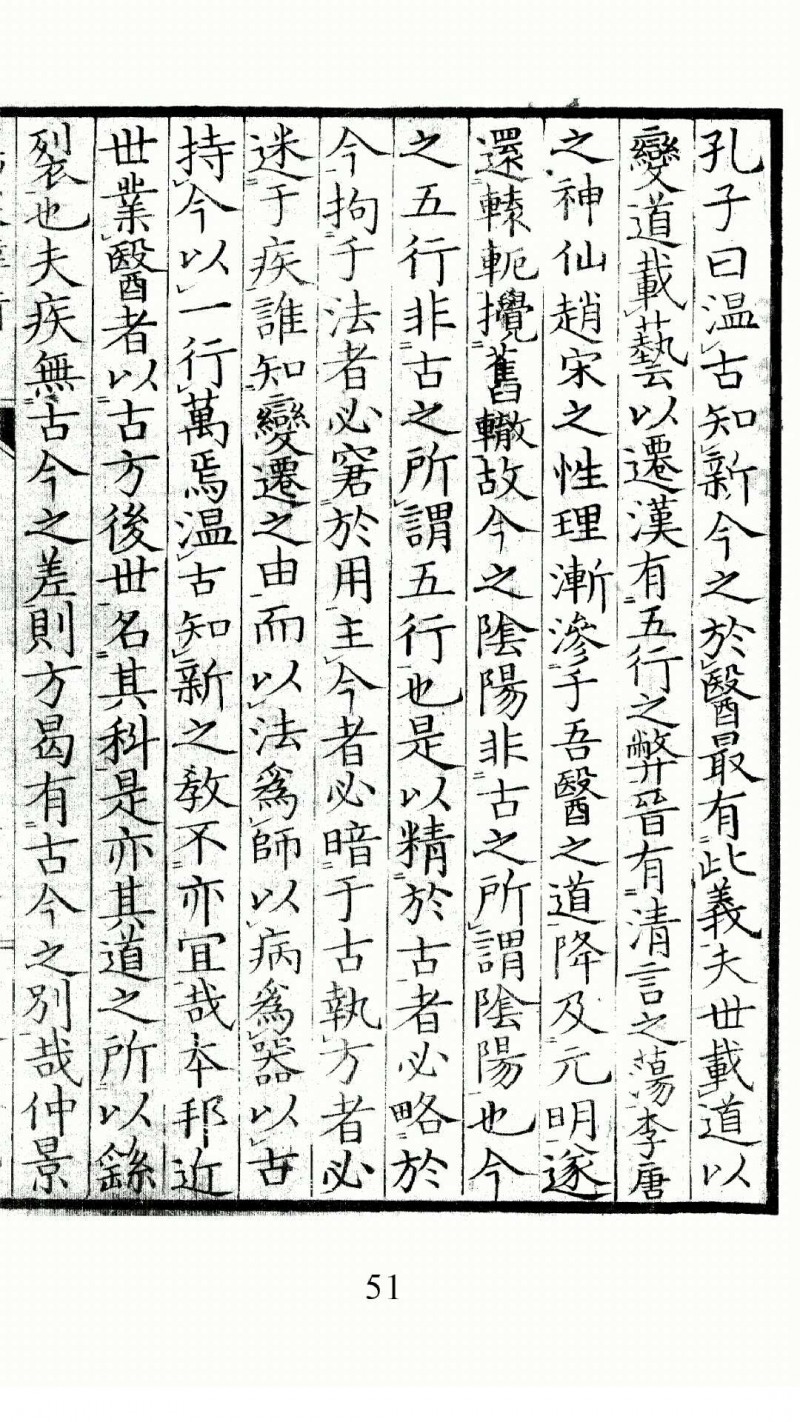 孔子曰温古知新今之於醫最有此義夫世載道以
變道載藝以遷漢有五行之弊晉有清言之蕩李唐
之神仙趙宋之性理漸滲于吾醫之道降及元明遂
還轅軛攪舊轍故今之陰陽非古之所謂陰陽也今
之五行非古之所謂五行也是以精於古者必略於
今拘于法者必窘於用主今者必暗于古執方者必
迷于疾誰知變遷之由而以法爲師以病爲器以古
持今以一行萬焉温古知新之教不亦宜哉本邦近
世業醫者以古方後世名其科是亦其道之所以繇
裂也夫疾無古今之差則方曷有古今之別哉仲景
51